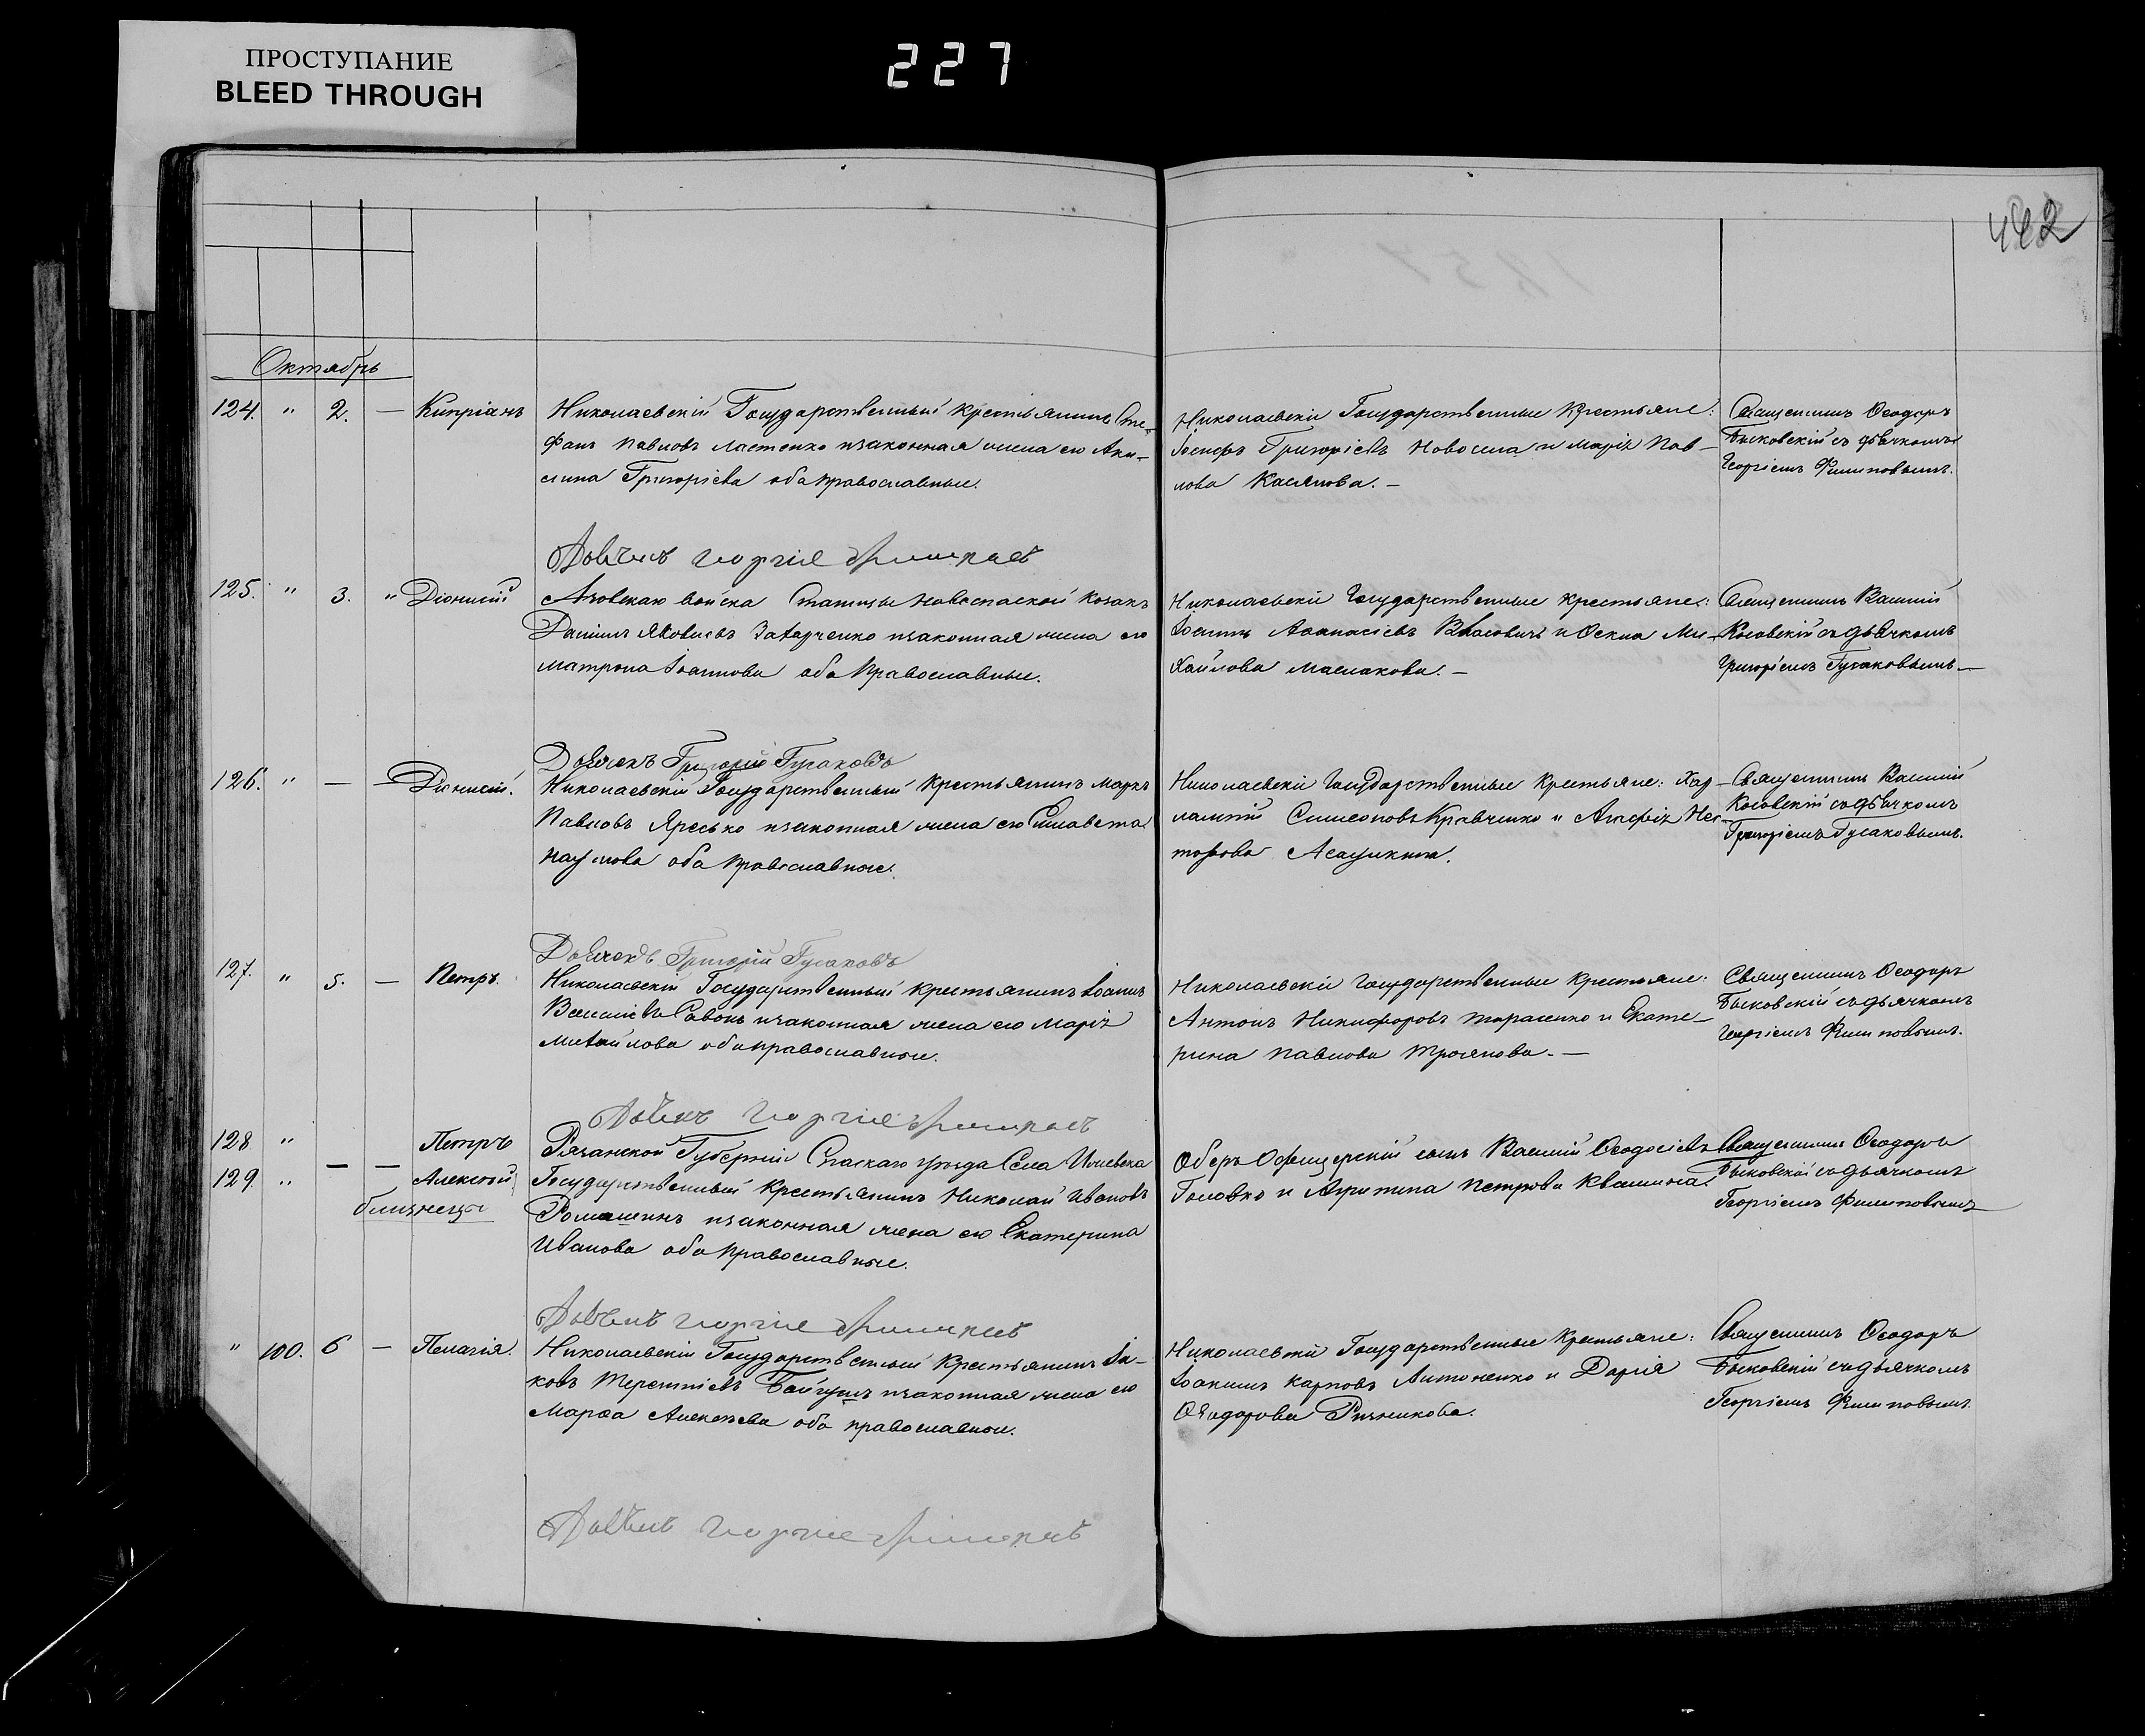 ПРОСТУПАНИЕ
BLEED THROUGH
227
442
Октябрь
124. " 2. — Кипріанъ
Николаевскій Государственный крестьянинъ Сте-
фанъ Павловъ Ластенко изаконная жена его Аку-
лина Григоріева оба православные.
Николаевскіи Государственные Крестьяне:
Іосифъ Григоріевъ Новохила и Марія Пав-
лова Касянова. —
Священникъ Ѳеодоръ
Быковскій съ дьячкомъ
Георгіемъ Филиповымъ.
125. " 3. " Діонисій
Азовскаго войска Станицы Новоспаской Козакъ
Даніилъ Яковлевъ Захарченко изаконная жена его
Матрона Іоаннова оба православные.
Николаевскіи Государственные крестьяне:
Іоаннъ Аѳанасіевъ Власовичъ и Оскна Ми-
хайлова Маслакова. —
Священникъ Василій
Косовскій съ дьячкомъ
Григоріемъ Гусаковымъ —
126. " — — Діонисій.
Дьячекъ Григорій Гусаковъ
Николаевскій Государственный крестьянинъ Маркъ
Павловъ Яресько изаконная жена его Елисавета
Наумова оба православные.
Николаевскіи Государственные крестьяне: Хар-
лампій Симеоновъ Кравченко и Агафія Нес-
торова
Священникъ Василій
Косовскій съ дьячкомъ
Григоріемъ Гусаковымъ.
127. " 5. — Петръ.
Дьячекъ Григорій Гусаковъ
Николаевскій Государственный крестьянинъ Іоаннъ
Василіевъ Савонъ изаконная жена его Марія
Михайлова оба православные.
Николаевскіи Государственные Крестьяне:
Антонъ Никифоровъ Тарасенко и Екате-
рина Павлова Троянова. —
Священникъ Ѳеодоръ
Быковскій съ дьячкомъ
Георгіемъ Филиповымъ.
128 " Петръ
129 " — — Алексѣй
близнецы
Рязанской Губерніи Спаскаго уѣзда Села Ижевска
Государственный Крестьянинъ Николай Ивановъ
Ромашинъ изаконная жена его Екатерина
Иванова оба православные.
Оберъ Офицерскій сынъ Василій Ѳеодосіевъ
Головко и Агрипина Петрова Квашина.
Священникъ Ѳеодоръ
Быковскій съ дьячкомъ
Георгіемъ Филиповымъ
" 100. 6 — Пелагія.
Николаевскій Государственный Крестьянинъ Іа-
ковъ Терентіевъ Байгушъ изаконная жена его
Марѳа Алексѣева оба православные.
Николаевскіи Государственные Крестьяне:
Іоакимъ Карповъ Антоненко и Дарія
Ѳеодорова Ризникова.
Священникъ Ѳеодоръ
Быковскій съ дьячкомъ
Георгіемъ Филиповымъ.